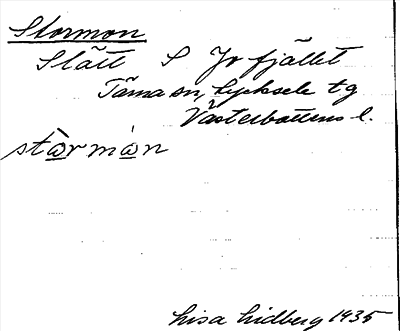 Stormon
Slått S Jofjället
Tärna sn, Lycksele tg
Västerbottens l.
stòrmòn
Lisa Lidberg 1935